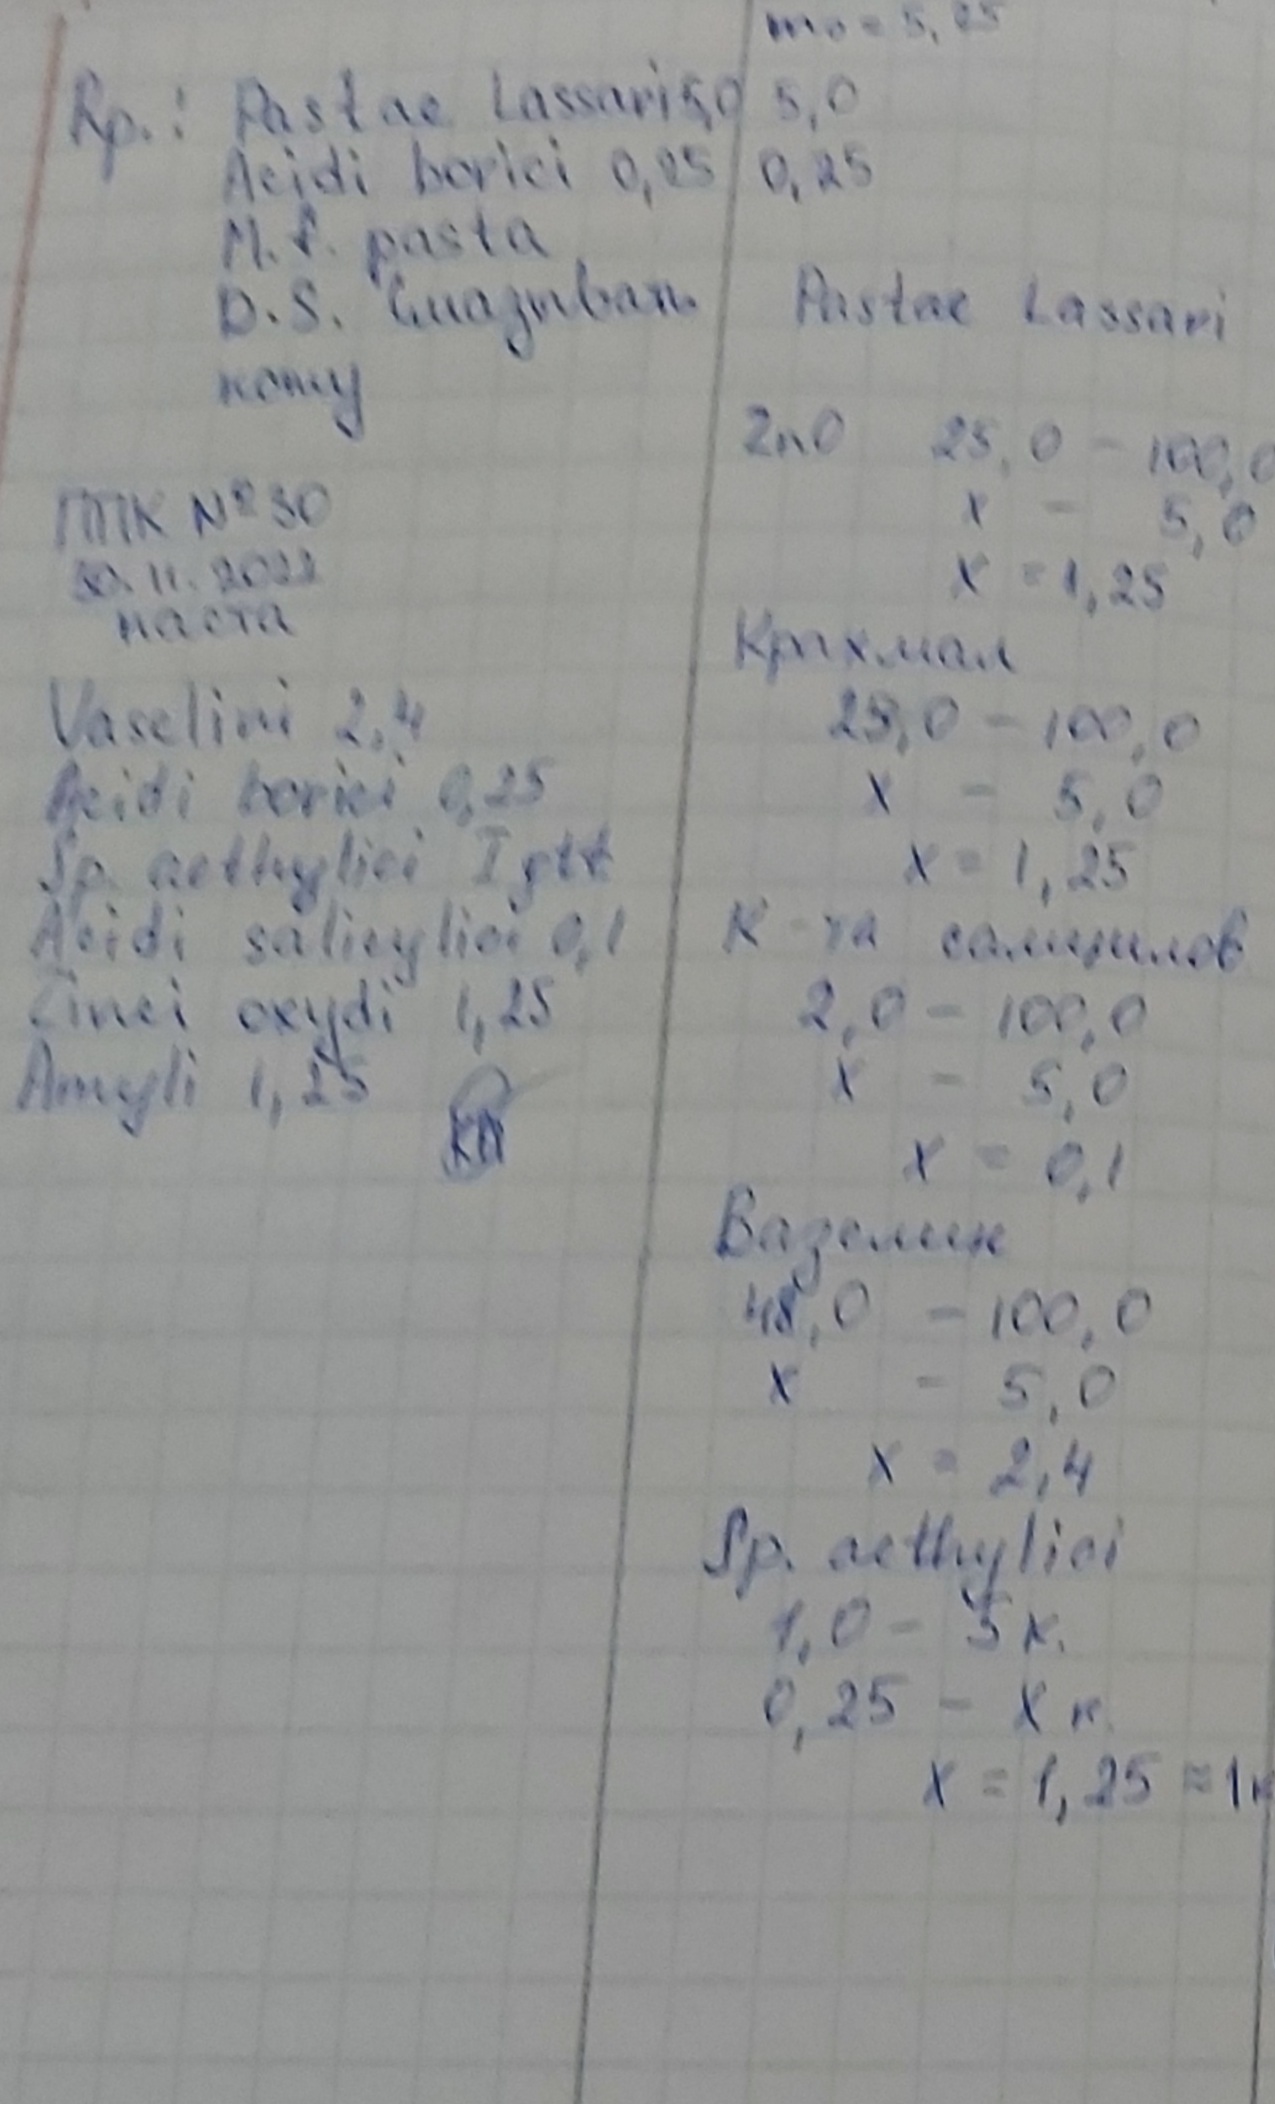 mo = 5,25
Rp.: Pastae Lassari 5,0 5,0
Acidi borici 0,25 0,25
M.f. pasta
D.S. Смазывать
кожу
ППК №30
30.11.2022
паста
Vaselini 2,4
Acidi borici 0,25
Sp. aethylici I gtt
Acidi salicylici 0,1
Zinci oxydi 1,25
Amyli 1,25
Pastae Lassari
ZnO 25,0 - 100,0
x - 5,0
x = 1,25
Крахмал
25,0 - 100,0
x - 5,0
x = 1,25
К-та салицилов
2,0 - 100,0
x - 5,0
x = 0,1
Вазелин
48,0 - 100,0
x - 5,0
x = 2,4
Sp. aethylici
1,0 - 5 к.
0,25 - x к.
x = 1,25 ≈ 1к